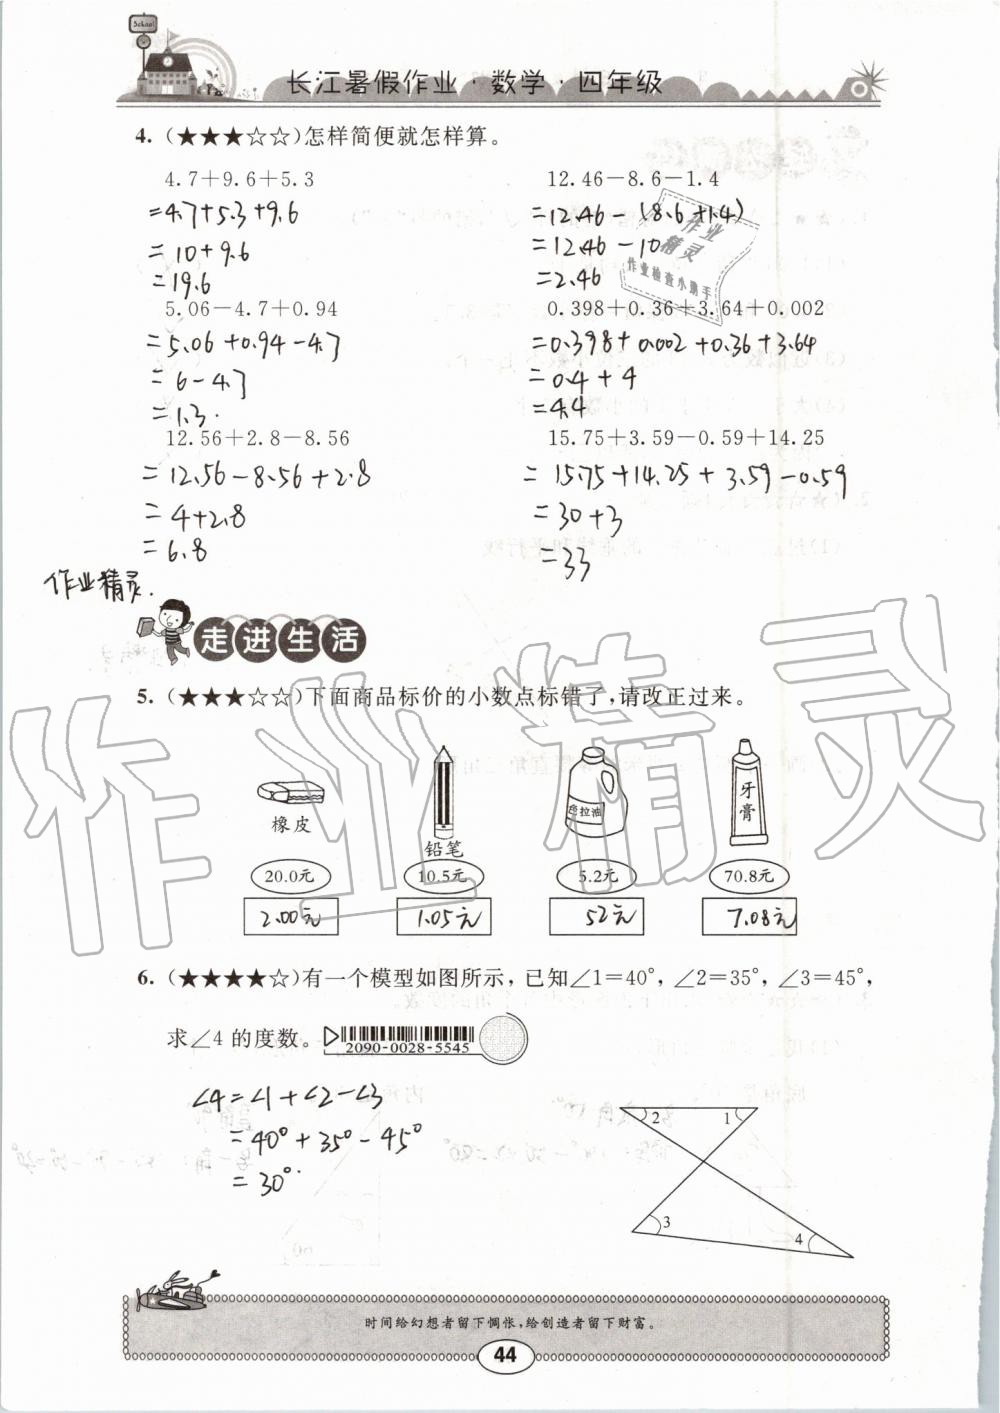 School
长江暑假作业·数学·四年级
4.(★★★☆☆)怎样简便就怎样算。
4.7+9.6+5.3
=4.7+5.3+9.6
=10+9.6
=19.6
12.46-8.6-1.4
=12.46-(8.6+1.4)
=12.46-10
=2.46
作业
精灵
作业检查小助手
5.06-4.7+0.94
=5.06+0.94-4.7
=6-4.7
=1.3.
0.398+0.36+3.64+0.002
=0.398+0.002+0.36+3.64
=0.4+4
=4.4
12.56+2.8-8.56
=12.56-8.56+2.8
=4+2.8
=6.8
15.75+3.59-0.59+14.25
=15.75+14.25+3.59-0.59
=30+3
=33
作业精灵.
走进生活
5.(★★★☆☆)下面商品标价的小数点标错了,请改正过来。
橡皮
铅笔
色拉油
牙膏
20.0元
10.5元
5.2元
70.8元
2.00元
1.05元
52元
7.08元
作业精灵
6.(★★★★☆)有一个模型如图所示,已知∠1=40°,∠2=35°,∠3=45°,
求∠4的度数。
2090-0028-5545
∠4=∠1+∠2-∠3
=40°+35°-45°
=30°.
2
1
3
4
时间给幻想者留下惆怅,给创造者留下财富。
44